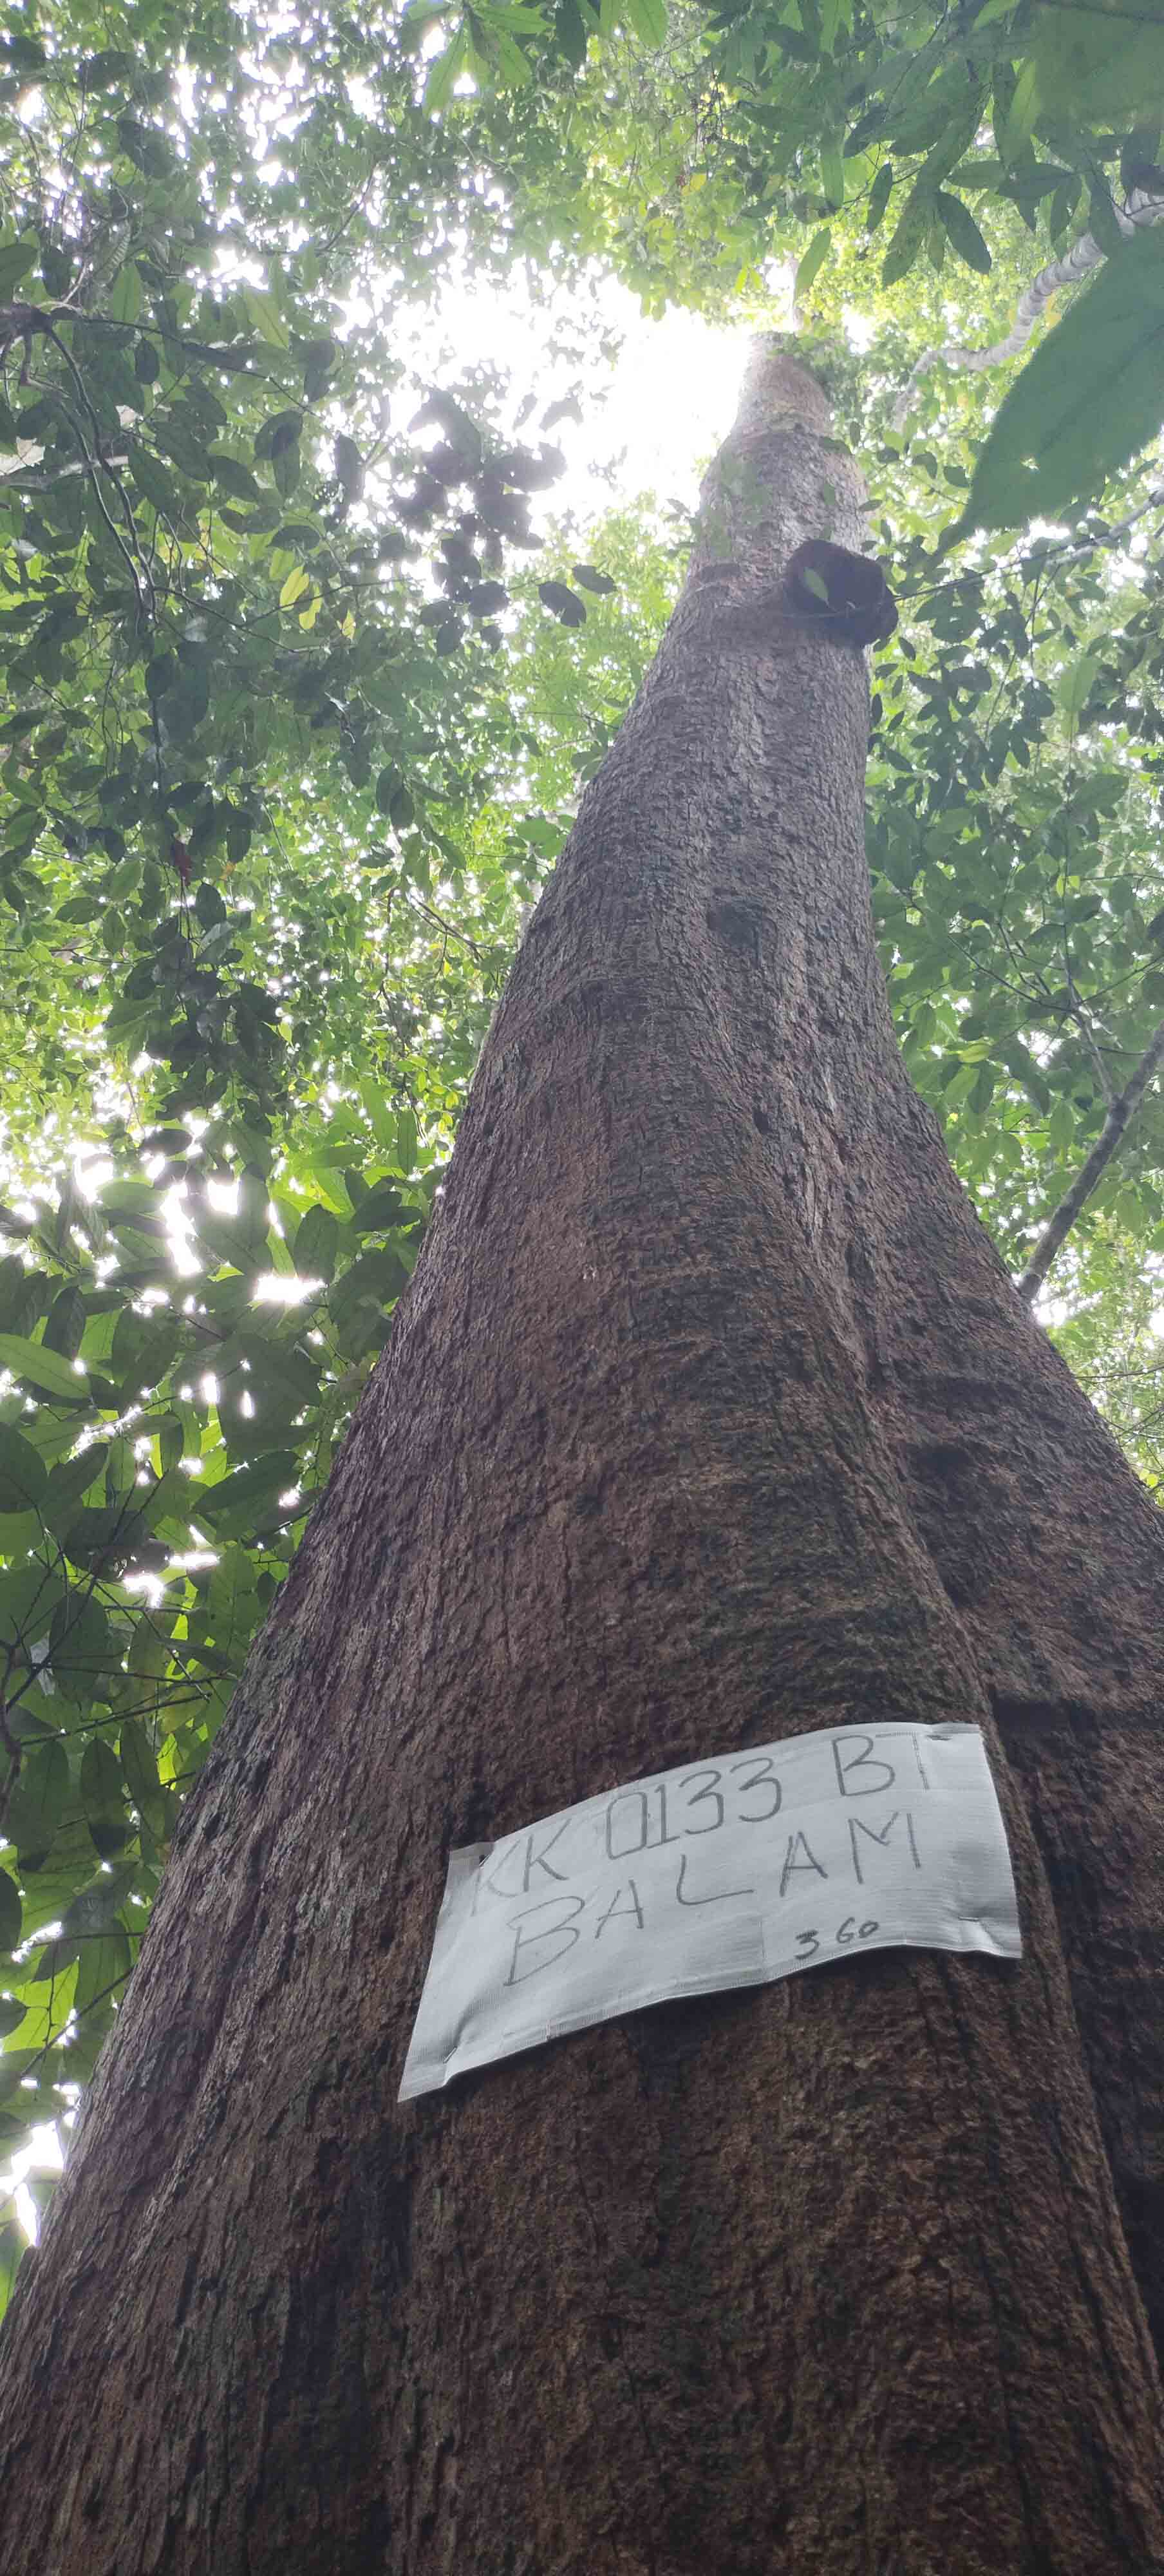 KK 0133 BT
BALAM
360